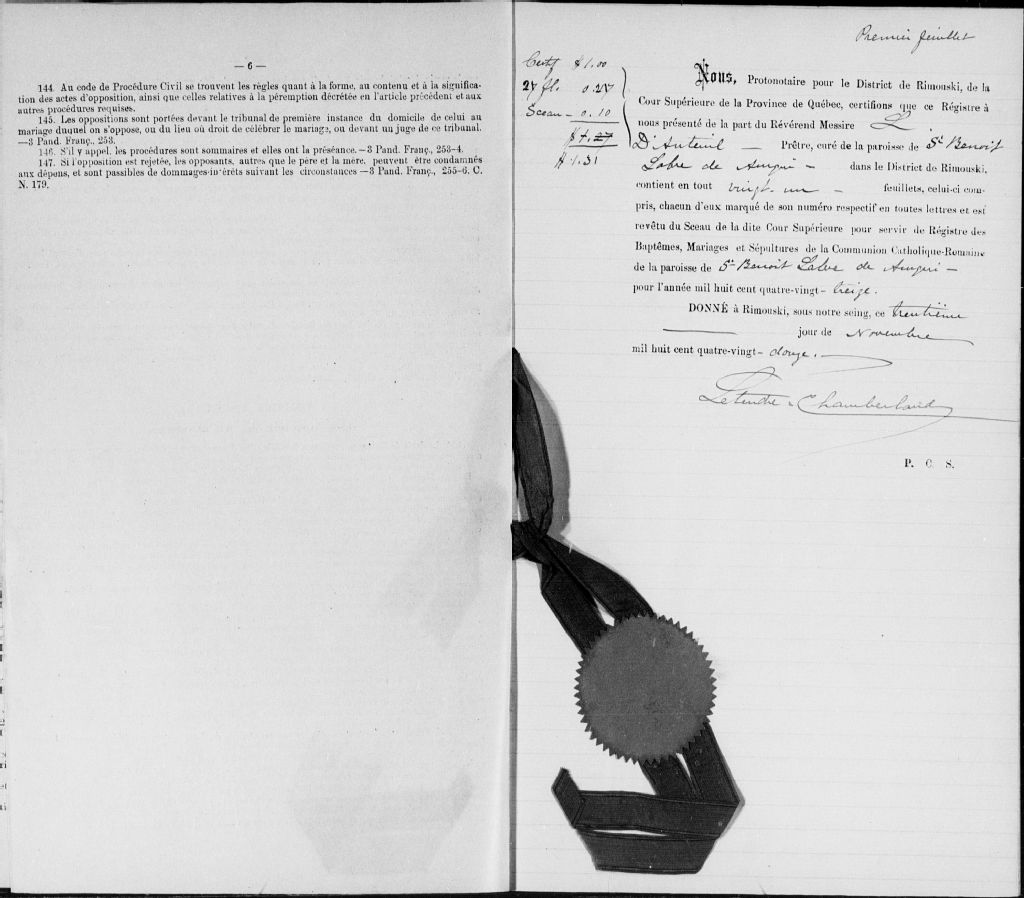 — 6 —
144. Au code de Procédure Civil se trouvent les règles quant à la forme, au contenu et à la significa-
tion des actes d'opposition, ainsi que celles relatives à la péremption décrétée en l'article précédent et aux
autres procédures requises.
145. Les oppositions sont portées devant le tribunal de première instance du domicile de celui au
mariage duquel on s'oppose, ou du lieu où droit de célébrer le mariage, ou devant un juge de ce tribunal.
—3 Pand. Franç., 253.
146. S'il y appel, les procédures sont sommaires et elles ont la préséance.—3 Pand. Franç., 253-4.
147. Si l'opposition est rejetée, les opposants, autres que le père et la mère, peuvent être condamnés
aux dépens, et sont passibles de dommages-intérêts suivant les circonstances—3 Pand. Franç., 255-6. C.
N. 179.
Premier feuillet
Certf $1.00
fl. 0.21
Sceau — 0.10
$1.31
Nous, Protonotaire pour le District de Rimouski, de la
Cour Supérieure de la Province de Québec, certifions que ce Régistre à
nous présenté de la part du Révérend Messire L.
D'Auteuil — Prêtre, curé de la paroisse de St Benoit
Labre de Amqui — dans le District de Rimouski,
contient en tout vingt-un — feuillets, celui-ci com-
pris, chacun d'eux marqué de son numéro respectif en toutes lettres et est
revêtu du Sceau de la dite Cour Supérieure pour servir de Régistre des
Baptêmes, Mariages et Sépultures de la Communion Catholique-Romaine
de la paroisse de St Benoit Labre de Amqui —
pour l'année mil huit cent quatre-vingt-treize.
DONNÉ à Rimouski, sous notre seing, ce trentième
jour de Novembre
mil huit cent quatre-vingt-douze.
Letendre & Chamberland
P. C. S.